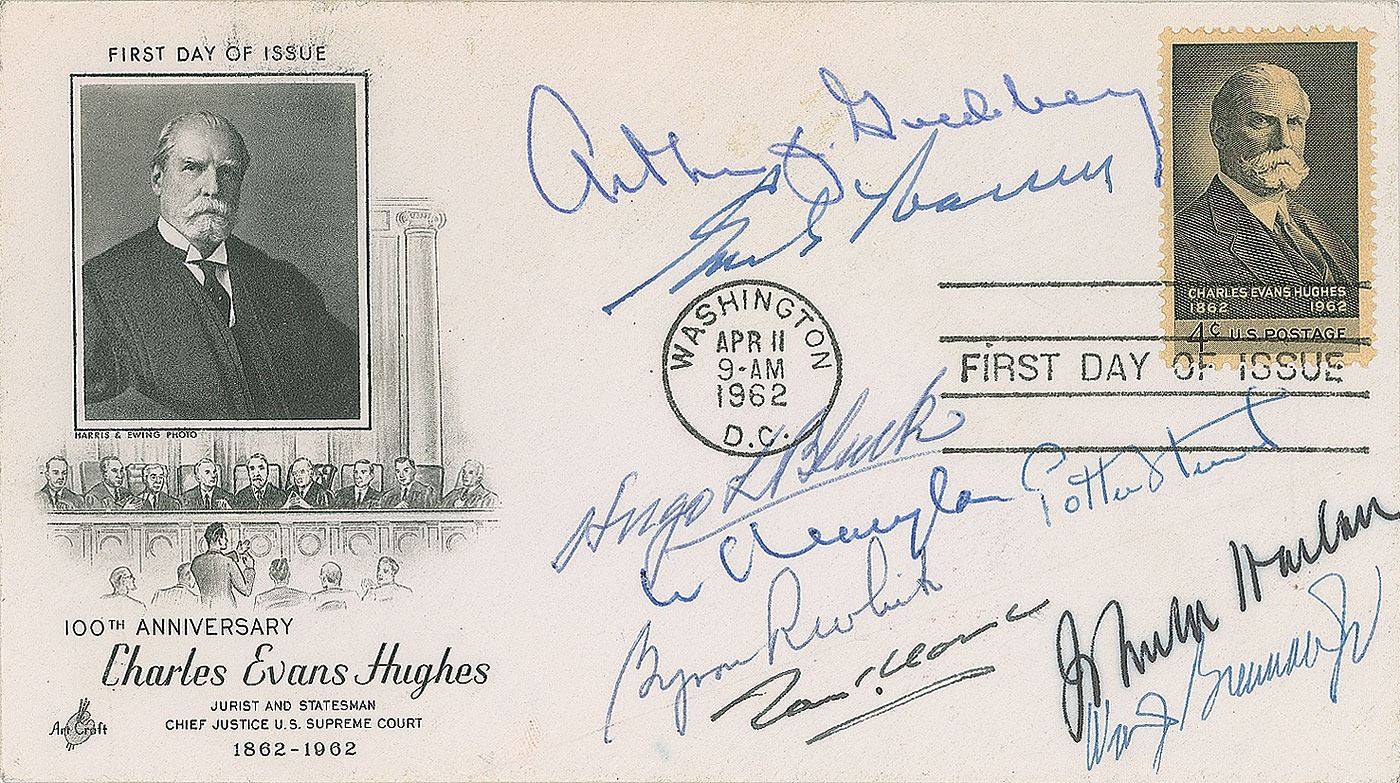 FIRST DAY OF ISSUE
HARRIS & EWING PHOTO
100TH ANNIVERSARY
Charles Evans Hughes
JURIST AND STATESMAN
CHIEF JUSTICE U.S. SUPREME COURT
1862-1962
Art Craft
Arthur J. Goldberg
Earl Warren
WASHINGTON
APR 11
9-AM
1962
D.C.
CHARLES EVANS HUGHES
1862 1962
4c U.S. POSTAGE
FIRST DAY OF ISSUE
Hugo L Black
Wm O Douglas
Potter Stewart
Byron R White
Tom C. Clark
John M. Harlan
Wm J Brennan Jr